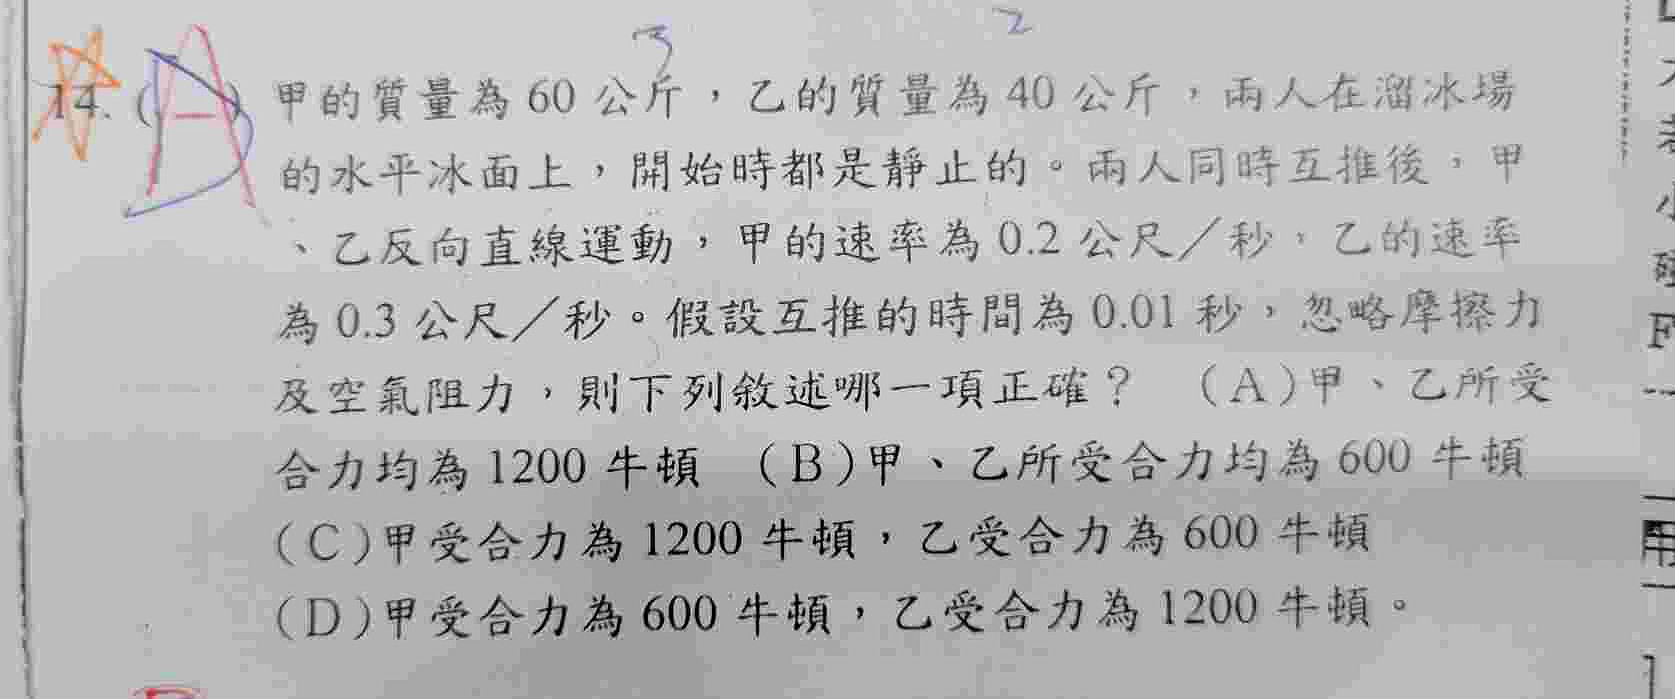 3 2
14. ( A ) 甲的質量為 60 公斤，乙的質量為 40 公斤，兩人在溜冰場
的水平冰面上，開始時都是靜止的。兩人同時互推後，甲
、乙反向直線運動，甲的速率為 0.2 公尺／秒，乙的速率
為 0.3 公尺／秒。假設互推的時間為 0.01 秒，忽略摩擦力
及空氣阻力，則下列敘述哪一項正確？ (A)甲、乙所受
合力均為 1200 牛頓 (B)甲、乙所受合力均為 600 牛頓
(C)甲受合力為 1200 牛頓，乙受合力為 600 牛頓
(D)甲受合力為 600 牛頓，乙受合力為 1200 牛頓。